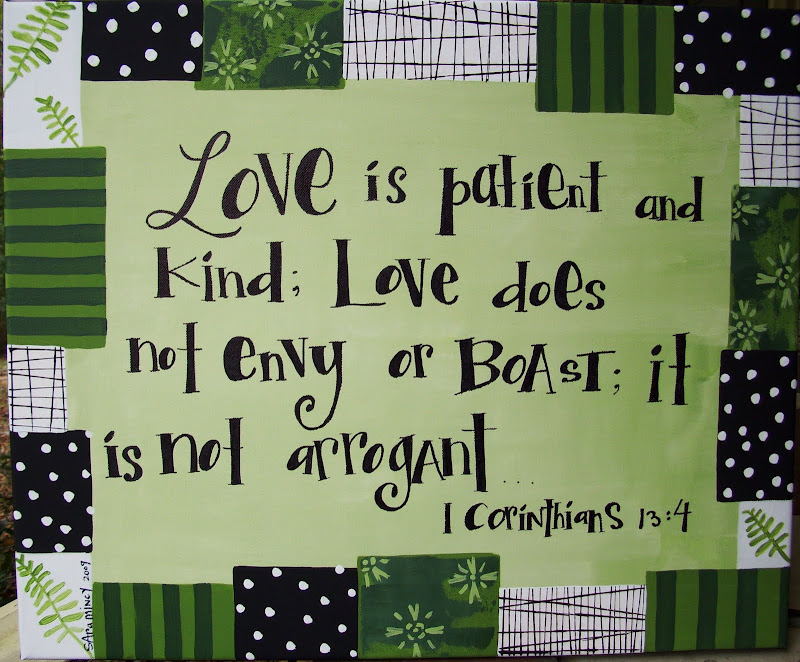 Love is patient and
Kind; Love does
not envy or BOAST; it
is not arrogant....
1 Corinthians 13:4
SARA MINCY 2009